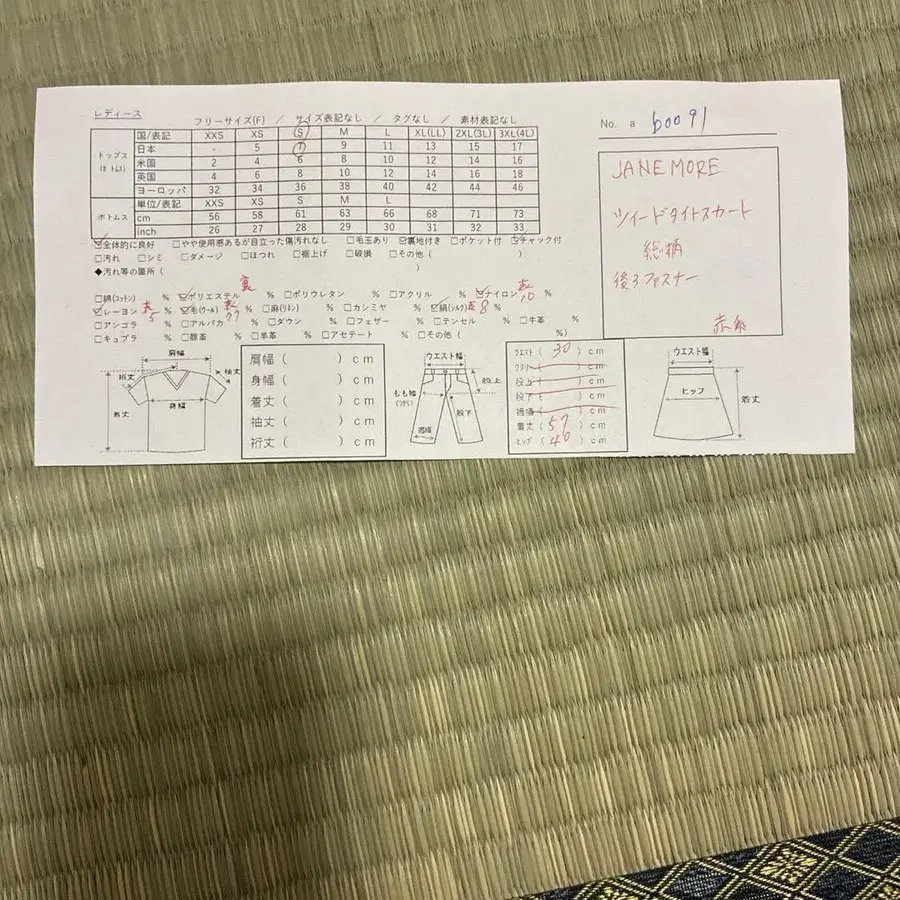 レディース
フリーサイズ(F) ／ サイズ表記なし ／ タグなし ／ 素材表記なし
No. a b0091
トップス (ボトムス)
国/表記 XXS XS S M L XL(LL) 2XL(3L) 3XL(4L)
日本 - 5 7 9 11 13 15 17
米国 2 4 6 8 10 12 14 16
英国 4 6 8 10 12 14 16 18
ヨーロッパ 32 34 36 38 40 42 44 46
ボトムス
単位/表記 XXS XS S M L
cm 56 58 61 63 66 68 71 73
inch 26 27 28 29 30 31 32 33
JANE MORE
ツイードタイトスカート
総柄
後ろファスナー
赤系
☑全体的に良好 □やや使用感あるが目立った傷汚れなし □毛玉あり ☑裏地付き □ポケット付 ☑チャック付
□汚れ □シミ □ダメージ □ほつれ □裾上げ □破損 □その他 ( )
◆汚れ等の箇所 ( )
□綿(コットン) % ☑ポリエステル 裏 % □ポリウレタン % □アクリル % ☑ナイロン 表10 %
☑レーヨン 表5 % ☑毛(ウール) 表77 % □麻(リネン) % □カシミヤ % ☑絹(シルク) 表8 %
□アンゴラ % □アルパカ % □ダウン % □フェザー % □テンセル % □牛革 %
□キュプラ % □豚革 % □羊革 % □アセテート % □その他 ( %)
肩幅
裄丈
袖丈
身幅
着丈
肩幅 ( ) cm
身幅 ( ) cm
着丈 ( ) cm
袖丈 ( ) cm
裄丈 ( ) cm
ウエスト幅
股上
もも幅
(ワタリ)
股下
裾幅
ウエスト ( 30 ) cm
ワタリ ( ) cm
股上 ( ) cm
股下 ( ) cm
裾幅 ( ) cm
着丈 ( 57 ) cm
ヒップ ( 40 ) cm
ウエスト幅
ヒップ
着丈